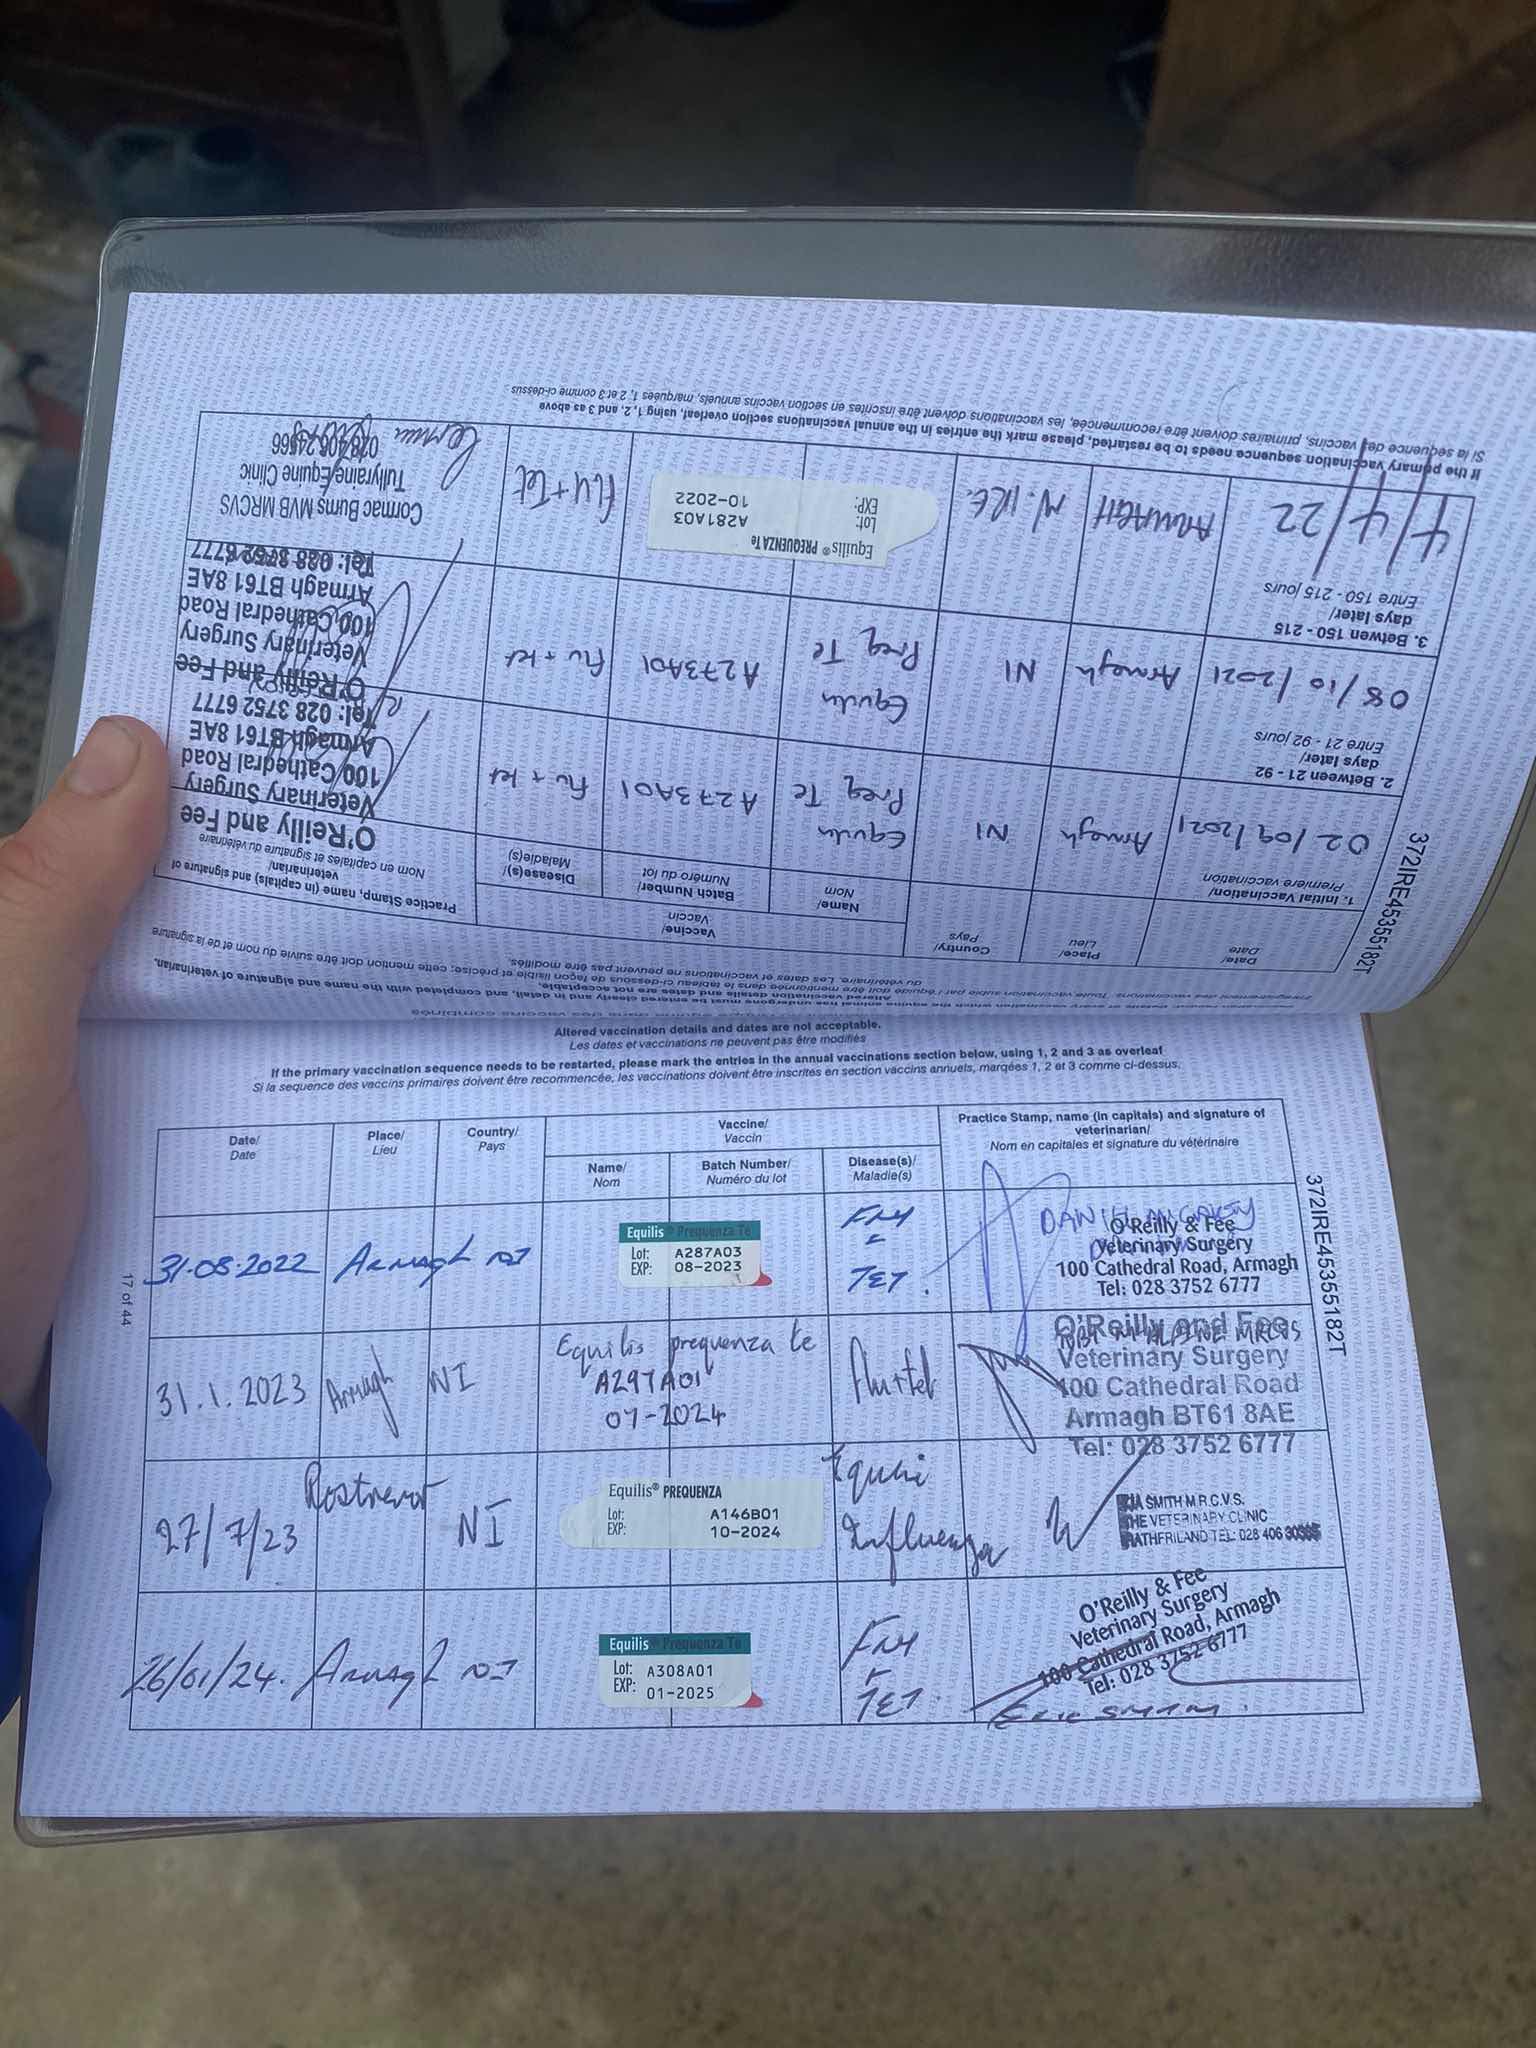 Enregistrement des vaccinations. Toute vaccination subie par l'équidé doit être mentionnée dans le tableau ci-dessous de façon lisible et précise; cette mention doit être suivie du nom et de la signature
du vétérinaire. Les dates et vaccinations ne peuvent pas être modifiés.
Altered vaccination details and dates are not acceptable.
Date/
Date
Place/
Lieu
Country/
Pays
Vaccine/
Vaccin
Name/
Nom
Batch Number/
Numéro du lot
Disease(s)/
Maladie(s)
Practice Stamp, name (in capitals) and signature of
veterinarian/
Nom en capitales et signature du vétérinaire
1. Initial Vaccination/
Première vaccination
02/09/2021
Armagh
NI
Equilis
Preq Te
A273A01
flu + tet
O'Reilly and Fee
Veterinary Surgery
100 Cathedral Road
Armagh BT61 8AE
Tel: 028 3752 6777
2. Between 21 - 92
days later/
Entre 21 - 92 jours
08/10/2021
Armagh
NI
Equilis
Preq Te
A273A01
flu + tet
O'Reilly and Fee
Veterinary Surgery
100 Cathedral Road
Armagh BT61 8AE
Tel: 028 3752 6777
3. Betwen 150 - 215
days later/
Entre 150 - 215 jours
4/4/22
ARMAGH
N. IRE.
Equilis® PREQUENZA Te
Lot: A281A03
EXP: 10-2022
FLU + Tet
Cormac Burns MVB MRCVS
Tullyraine Equine Clinic
372IRE45355182T
If the primary vaccination sequence needs to be restarted, please mark the entries in the annual vaccinations section overleaf, using 1, 2 and 3 as above
Si la séquence des vaccins, primaires doivent être recommencée, les vaccinations doivent être inscrites en section vaccins annuels, marquées 1, 2 et 3 comme ci-dessus
Altered vaccination details and dates are not acceptable.
Les dates et vaccinations ne peuvent pas être modifiés
If the primary vaccination sequence needs to be restarted, please mark the entries in the annual vaccinations section below, using 1, 2 and 3 as overleaf
Si la sequence des vaccins primaires doivent être recommencée, les vaccinations doivent être inscrites en section vaccins annuels, marqées 1, 2 et 3 comme ci-dessus.
Date/
Date
Place/
Lieu
Country/
Pays
Vaccine/
Vaccin
Name/
Nom
Batch Number/
Numéro du lot
Disease(s)/
Maladie(s)
Practice Stamp, name (in capitals) and signature of
veterinarian/
Nom en capitales et signature du vétérinaire
31.08.2022
Armagh
NI
Equilis® Prequenza Te
Lot: A287A03
EXP: 08-2023
FLU
+
TET.
O'Reilly & Fee
Veterinary Surgery
100 Cathedral Road, Armagh
Tel: 028 3752 6777
31.1.2023
Armagh
NI
Equilis prequenza te
A297A01
07-2024
flu+tet
O'Reilly and Fee
Veterinary Surgery
100 Cathedral Road
Armagh BT61 8AE
Tel: 028 3752 6777
27/7/23
Rostrevor
NI
Equilis® PREQUENZA
Lot: A146B01
EXP: 10-2024
Equine
Influenza
SMITH M.R.C.V.S.
THE VETERINARY CLINIC
RATHFRILAND TEL: 028 406
26/01/24.
Armagh
NI
Equilis® Prequenza Te
Lot: A308A01
EXP: 01-2025
FLU
+
TET.
O'Reilly & Fee
Veterinary Surgery
100 Cathedral Road, Armagh
Tel: 028 3752 6777
372IRE45355182T
17 of 44